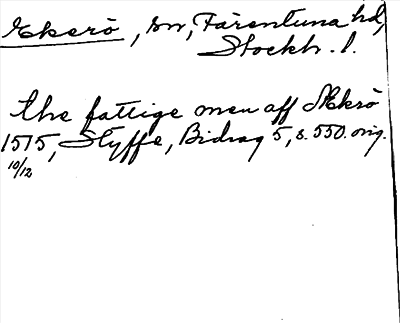 Ekerö, sn, Färentuna hd,
Stockh. l.
the fattige men aff Ækrö
1515, Styffe, Bidrag 5, s. 550. orig.
10/12